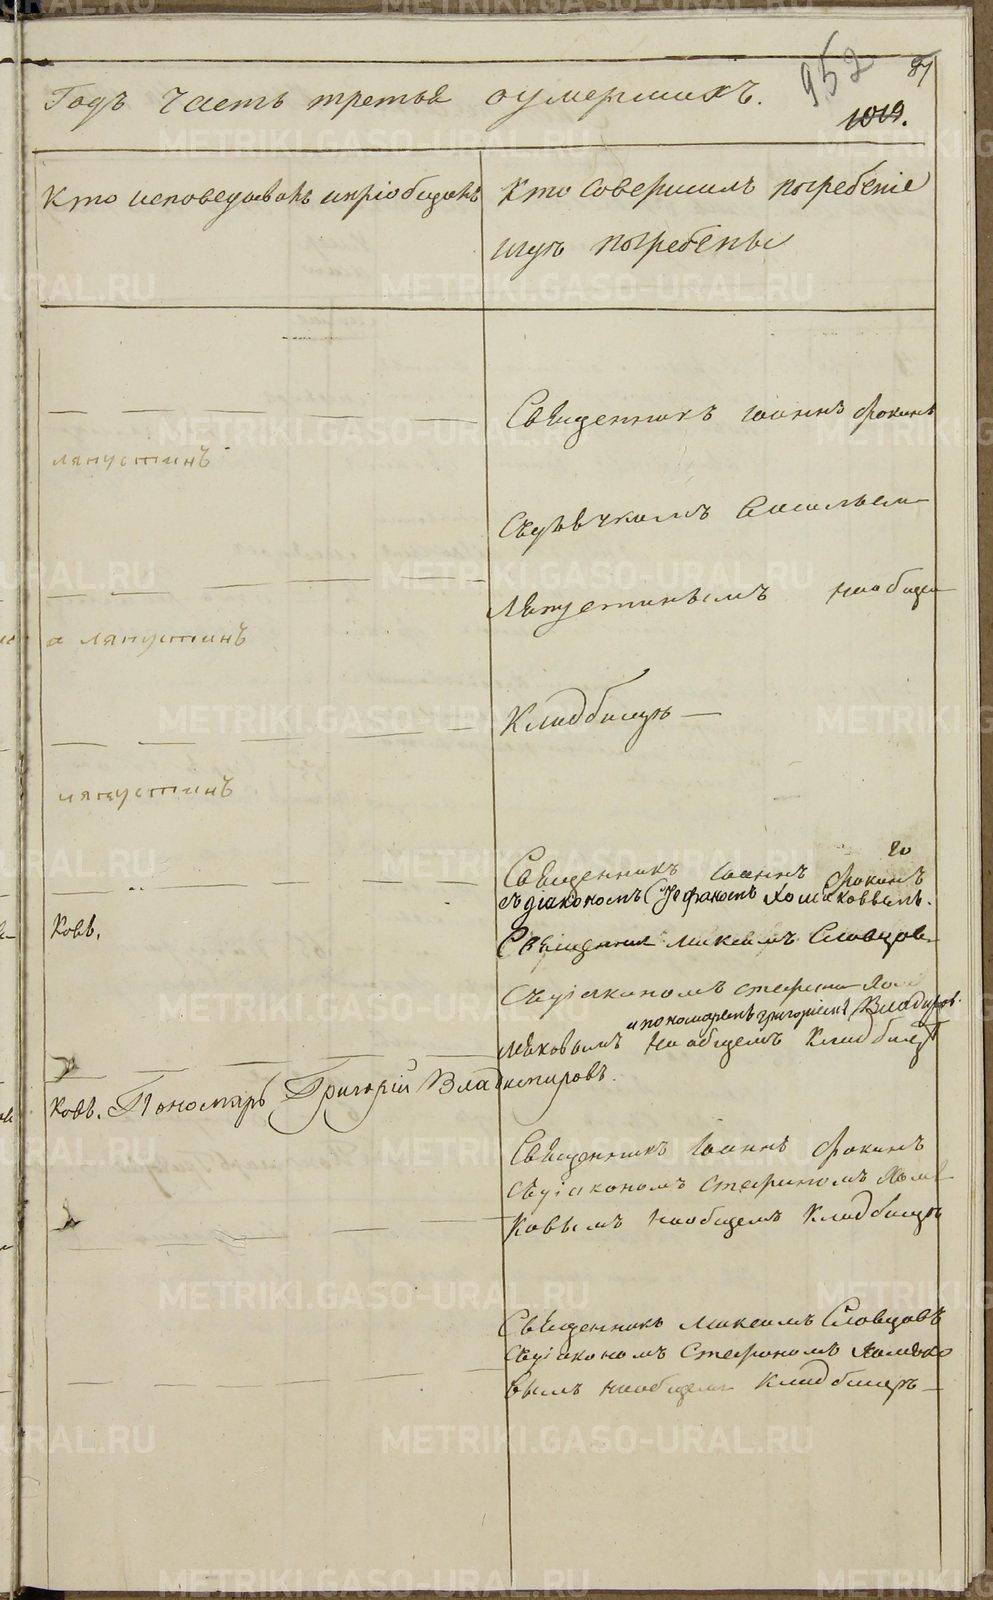 952
87
Годъ часть третья оумершихъ.
1019.
Кто исповедовалъ ипріобщалъ
Кто Совершилъ погребеніе
игдѣ погребены
Священникъ Іоаннъ Фокинъ
ляпустинъ
Сдьячкомъ Васильем
Ляпустинымъ наобщем
а ляпустинъ
Кладбищѣ —
ляпустинъ
Священникъ Іоаннъ Фокинъ
съ діакономъ Стефаномъ Хомяковымъ.
ковъ.
Священник Максимъ Словцов
Сдіакономъ стефаном Хом
и пономаремъ Григоріемъ Владиміров.
яковымъ на общемъ Кладбищѣ
ковъ. Пономарь Григорій Владимировъ.
Священникъ Іоаннъ Фокинъ
Сдіакономъ Стефаномъ Хомя
ковымъ наобщемъ Кладбищѣ
Священникъ Максимъ Словцовъ
Сдіакономъ Стефаномъ Хомяко
вымъ наобщем Кладбищѣ —
METRIKI.GASO-URAL.RU